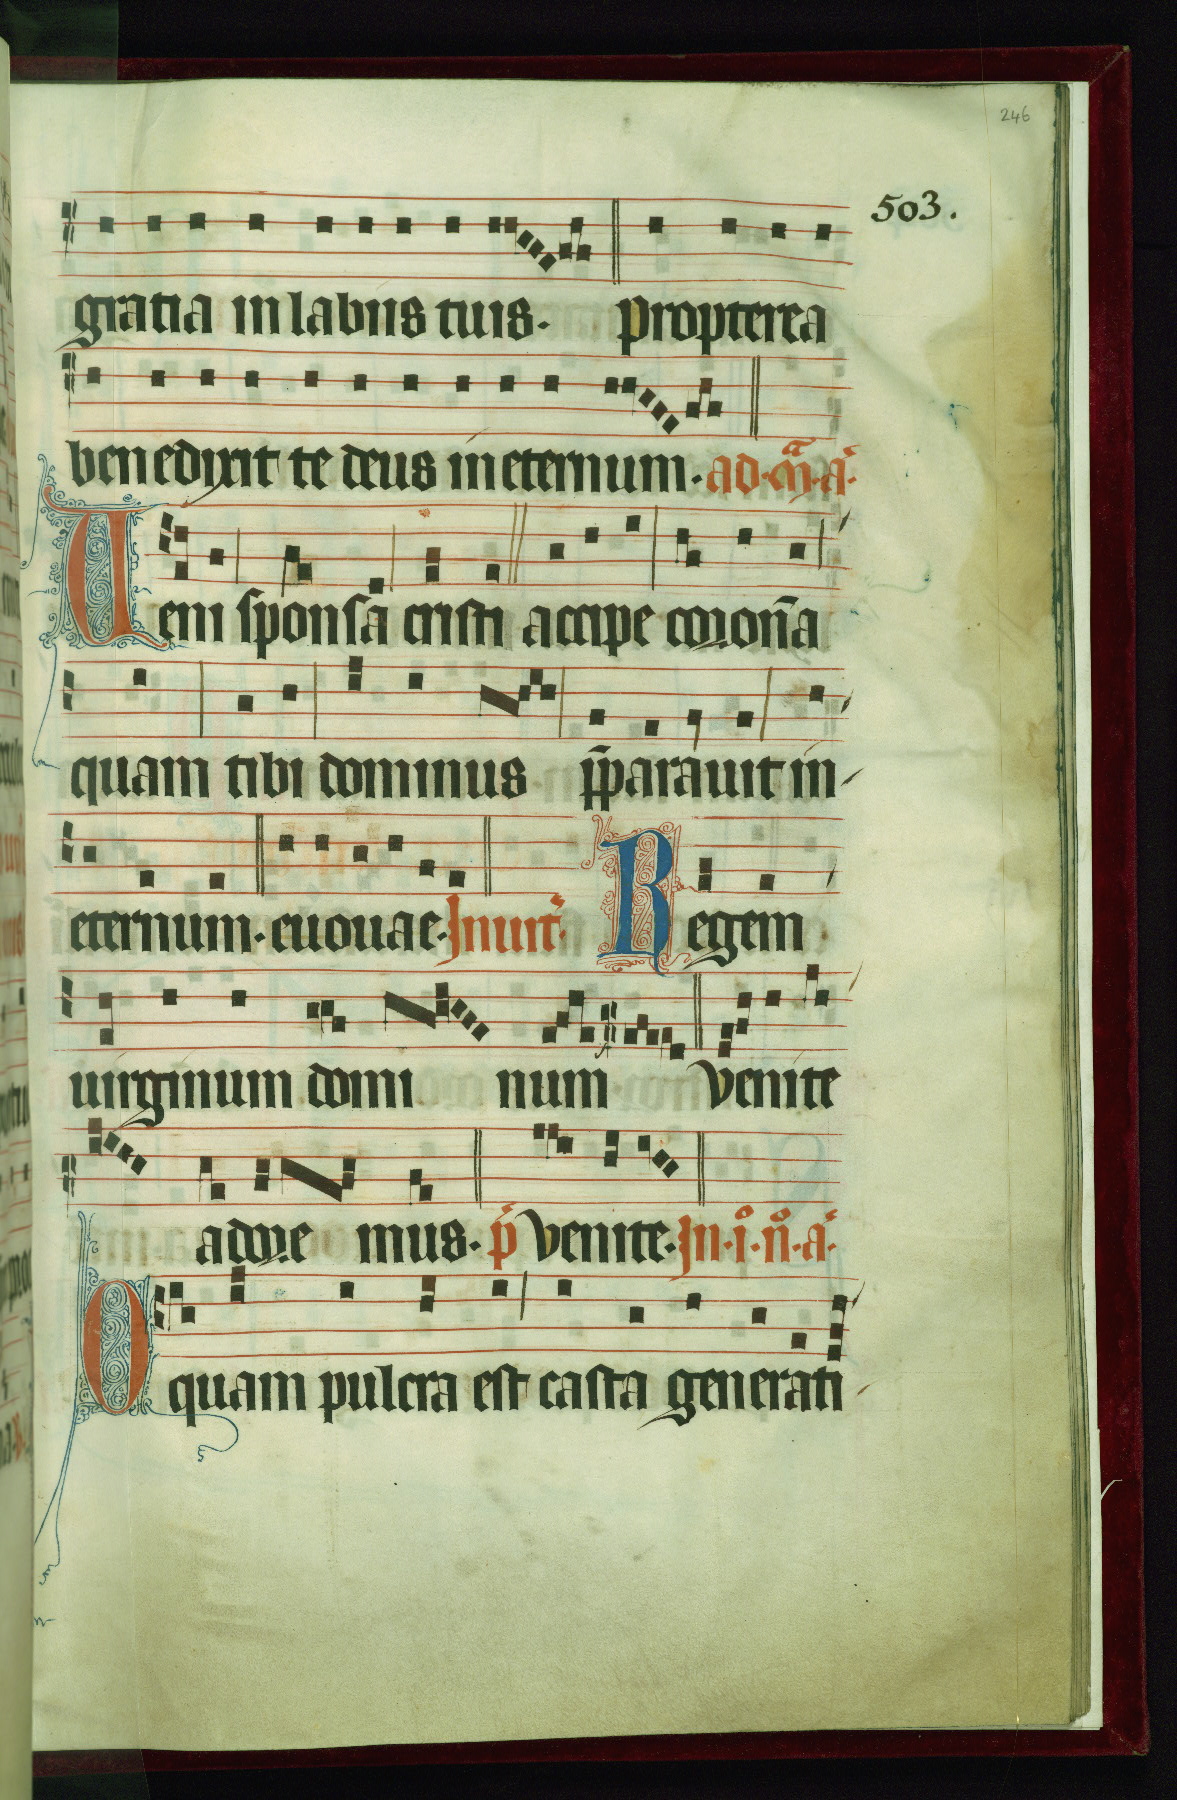 246
503.
gratia in labiis tuis. propterea
benedixit te deus in eternum. ad. m̄. a̓.
Ueni sponsa cristi accipe coron̄a
quam tibi dominus p̄parauit in
eternum. euouae. Inuit̓.
Regem
uirginum domi num venite
adore mus. p̓ venite. In. i̊. n̊. a̓.
O quam pulcra est casta generati